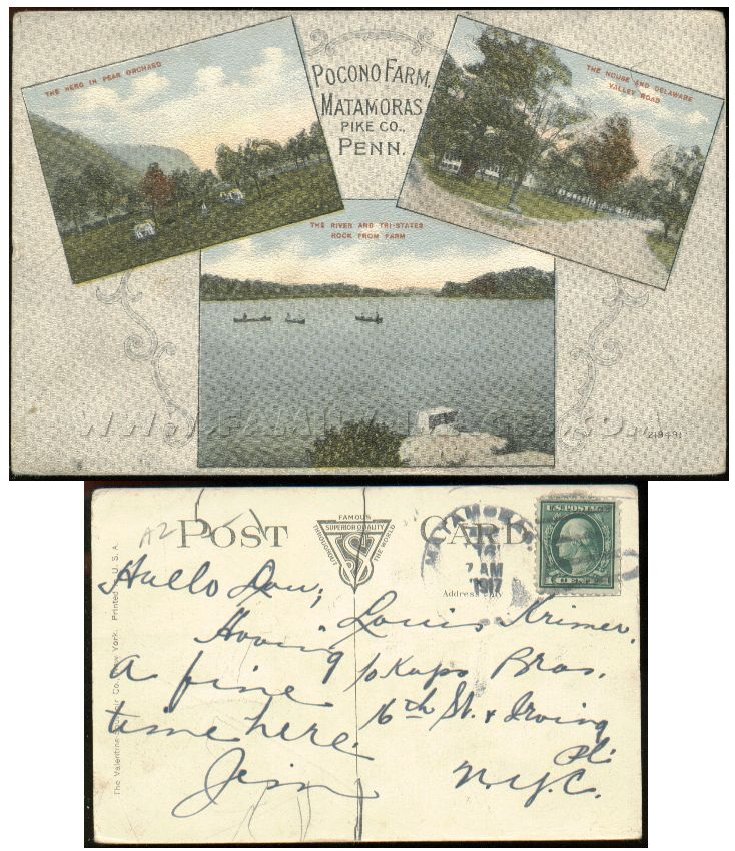 THE HERD IN PEAR ORCHARD
POCONO FARM,
MATAMORAS
PIKE CO.,
PENN.
THE HOUSE AND DELAWARE
VALLEY ROAD
THE RIVER AND TRI-STATES
ROCK FROM FARM
A2
POST CARD
FAMOUS
SUPERIOR QUALITY
THROUGHOUT THE WORLD
MATAMORAS
7 AM
1917
U.S. POSTAGE
Address Only
The Valentine Co. New York. Printed in U.S.A.
Hallo Lou;
Having
a fine
time here.
Louis Krimer.
c/o Kaps Bros.
16th St. & Irving
Pl.
N.Y.C.